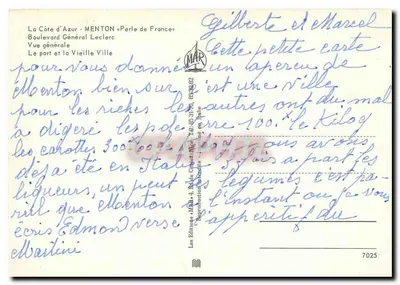 La Côte d'Azur - MENTON «Perle de France»
Boulevard Général Leclerc
Vue générale
Le port et la Vieille Ville
MAR
Gilberte et Marcel
Cette petite carte
pour vous donner un aperçu de
Menton bien sur c'est une ville
pour les riches les autres ont du mal
a digéré les pde terre 100f le Kilog
les carottes 200 nous avons
deja été en Italie 3 fois a part les
liqueurs, un peut les légumes c'est pa
reil que Menton l'instant ou je vous
ecris Edmon verse appéritif du
Martini
7025